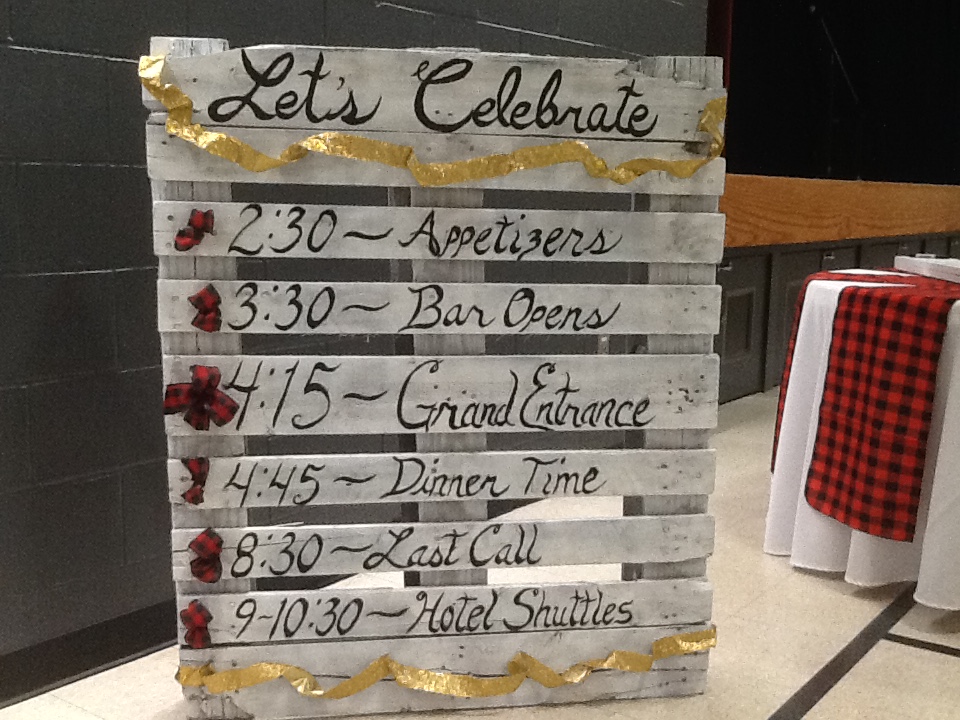 Let's Celebrate
2:30 ~ Appetizers
3:30 ~ Bar Opens
4:15 ~ Grand Entrance
4:45 ~ Dinner Time
8:30 ~ Last Call
9-10:30 ~ Hotel Shuttles